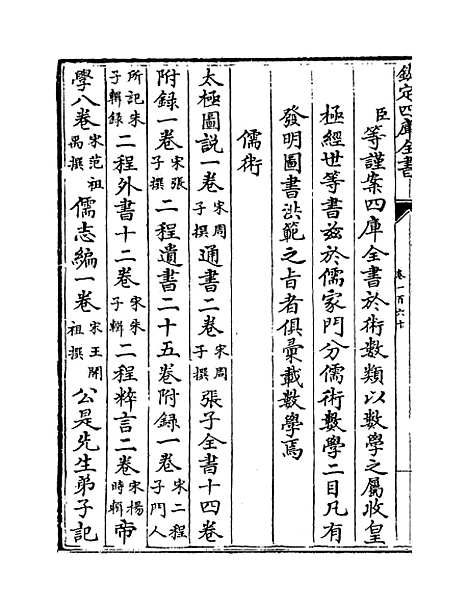 欽定四庫全書
卷一百六十七
臣等謹案四庫全書於術數類以數學之屬收皇
極經世等書兹於儒家門分儒術數學二目凡有
發明圖書洪範之旨者俱彙載數學焉
儒術
太極圖説一卷宋周子撰通書二卷宋周子撰張子全書十四卷
附録一卷宋張子撰二程遺書二十五卷附録一卷宋二程子門人
所記朱子輯録二程外書十二卷宋朱子輯二程粹言二卷宋楊時輯帝
學八卷宋范祖禹撰儒志編一卷宋王開祖撰公是先生弟子記